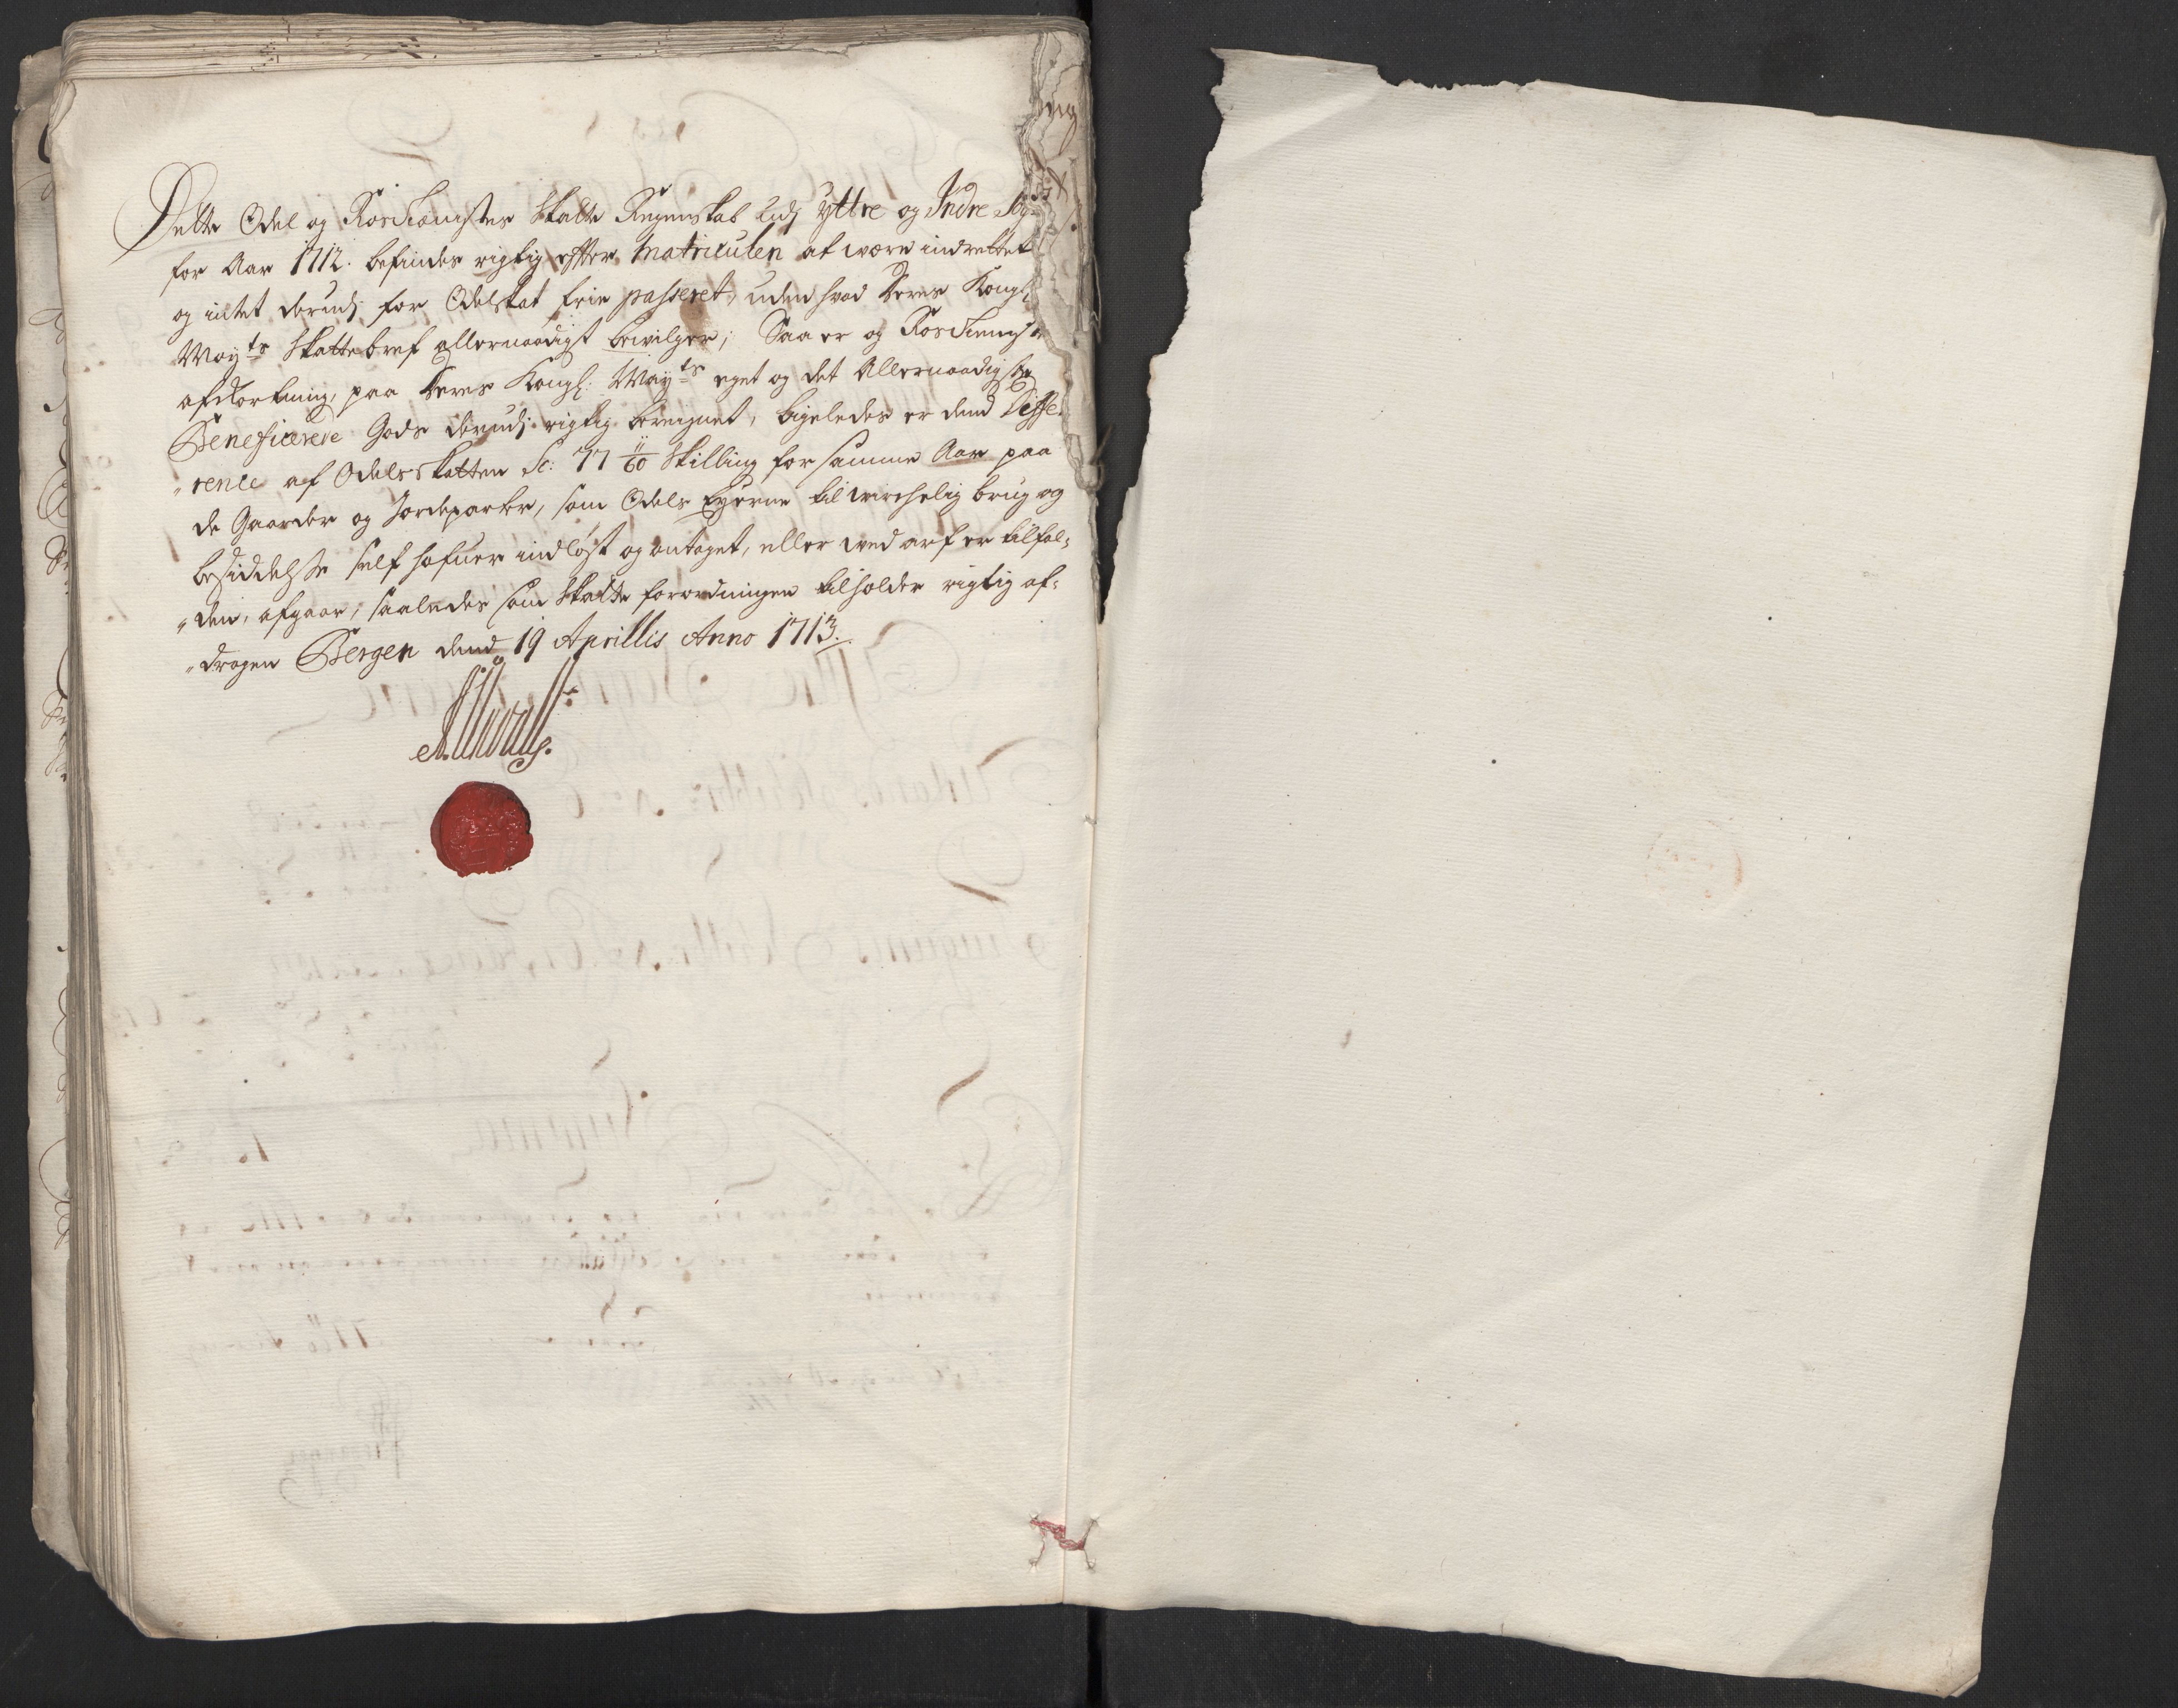 Dette Odel og RosTienister Skatte Regenskab udj yttre og Indre Sogn
for Aar 1712. befindes rigtig effter Matriculen at være indrettet
og intet derudj for Odelskat frie passeret, uden hvad Deres Kongl:
Mayts Skattebref allernaadigst bevilger; Saa er og RosTienist
afkortning, paa Deres Kongl: Mayts eget og det Allernaadigste
Beneficerede Gods derudj rigtig beregnet, ligeledes er dend Diffe-
"rence af Odelsskatten Sc: 77 11/60 Skilling for samme Aar paa
de Gaarder og Jordeparter, som Odels Eyerne til wirchelig brug og
besiddelsse self hafuer indløst og antaget, eller ved arf er tilfal-
"den, afgaar, saaledes som Skatte forordningen tilholder rigtig af-
"dragen Bergen dend 19 Aprillis Anno 1713.